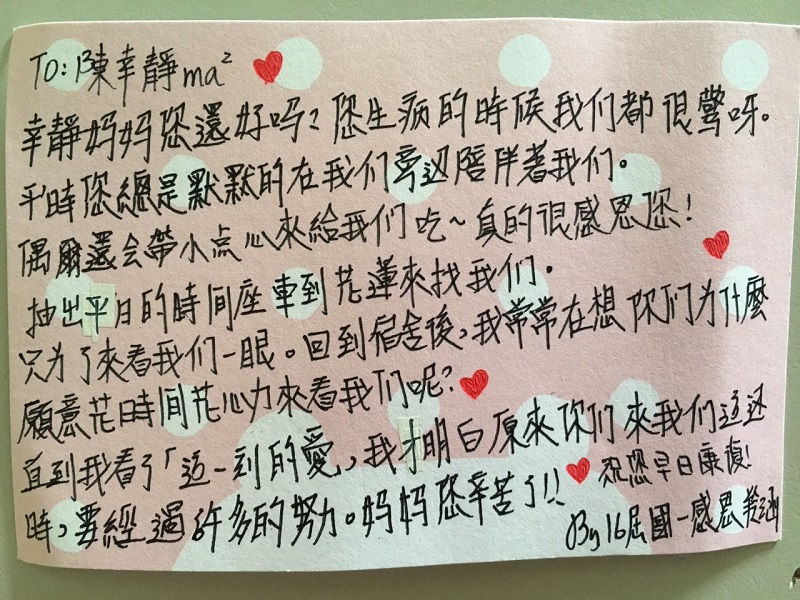 To: 陳幸靜 ma²
幸靜妈妈您還好吗? 您生病的時候我们都很驚呀。
平時您總是默默的在我们旁边陪伴著我们。
偶爾還会帶小点心來給我们吃~真的很感恩您!
抽出平日的時间座車到花蓮來找我们。
只为了來看我们一眼。回到宿舍後,我常常在想你们为什麼
願意花時间花心力來看我们呢?
直到我看了「這一刻的愛」,我才明白原來你们來我们這边
時,要經過許多的努力。妈妈您辛苦了!!
祝您早日康復!
By 16屆國一感恩美涵